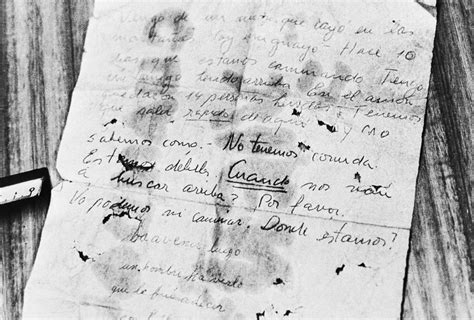 Vengo de un avion que cayó en las
montañas. Soy uruguayo. Hace 10
dias que estamos caminando. Tengo
un amigo herido arriba. En el avión
quedan 14 personas heridas. Tenemos
que salir rápido de aqui y no
sabemos como. No tenemos comida.
Estamos debiles. Cuando nos van
a buscar arriba? Por favor.
No podemos ni caminar. Donde estamos?
va a venir luego
un hombre a verlo
que le fui a